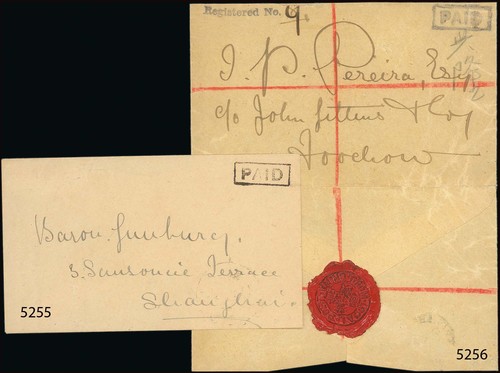 Registered No. 9.
PAID
J. P. Pereira, Esq
c/o John Gittins & Coy
Foochow
PAID
Baron Gunburg,
3 Sansoucie Terrace
Shanghai
5255
5256